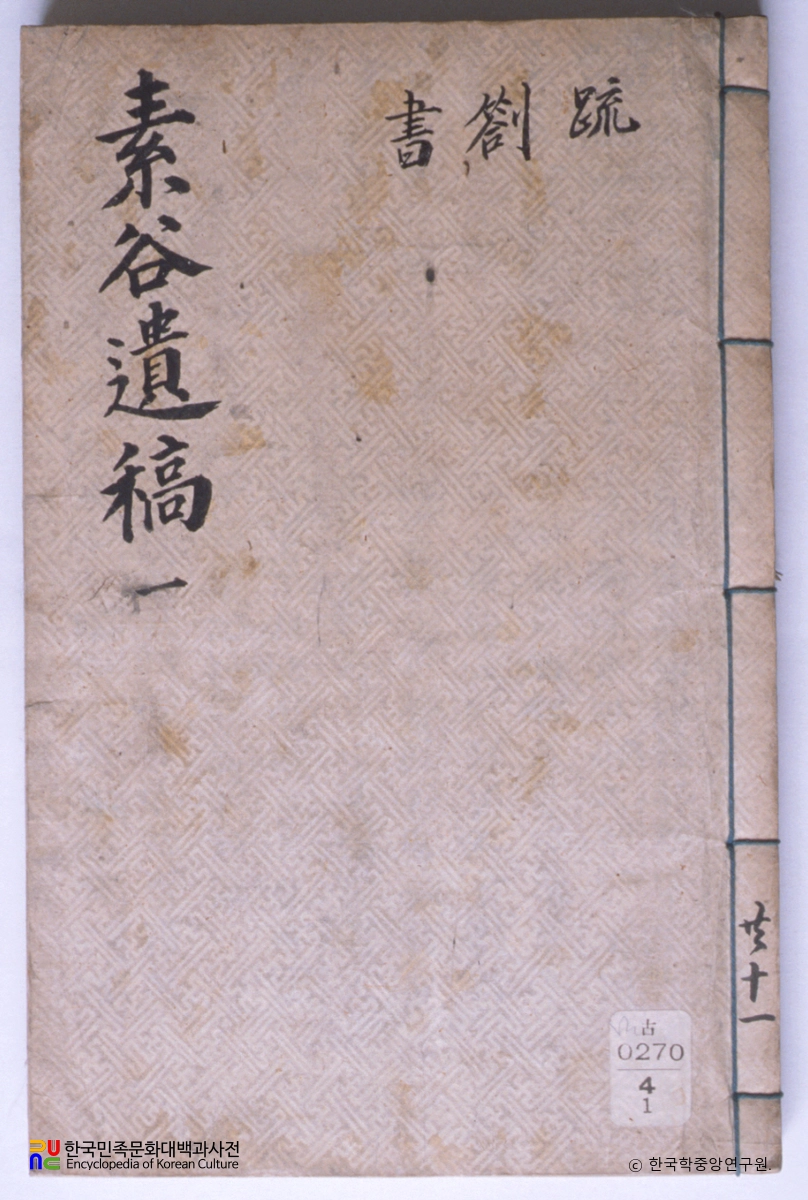 疏
劄
書
素谷遺稿 一
共十一
古
0270
4
1
한국민족문화대백과사전
Encyclopedia of Korean Culture
ⓒ 한국학중앙연구원.